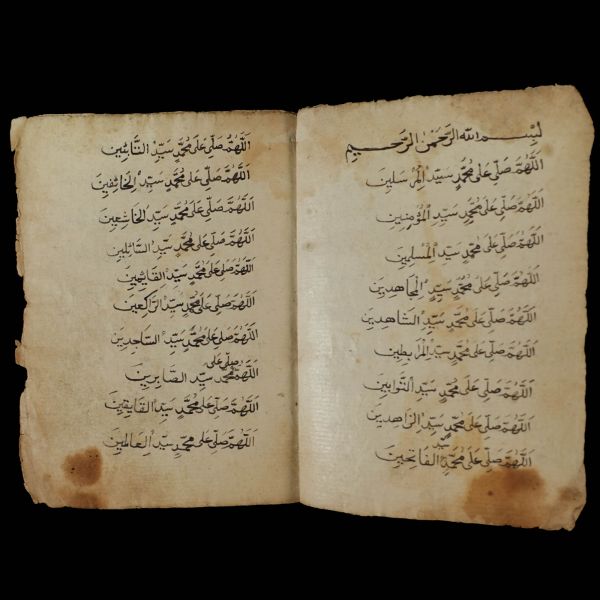 بِسْمِ اللهِ الرَّحْمٰنِ الرَّحِيمِ
اَللّٰهُمَّ صَلِّ عَلَى مُحَمَّدٍ سَيِّدِ الْمُرْسَلِينَ
اَللّٰهُمَّ صَلِّ عَلَى مُحَمَّدٍ سَيِّدِ الْمُؤْمِنِينَ
اَللّٰهُمَّ صَلِّ عَلَى مُحَمَّدٍ سَيِّدِ الْمُسْلِمِينَ
اَللّٰهُمَّ صَلِّ عَلَى مُحَمَّدٍ سَيِّدِ الْمُجَاهِدِينَ
اَللّٰهُمَّ صَلِّ عَلَى مُحَمَّدٍ سَيِّدِ الشَّاهِدِينَ
اَللّٰهُمَّ صَلِّ عَلَى مُحَمَّدٍ سَيِّدِ الْمُرَابِطِينَ
اَللّٰهُمَّ صَلِّ عَلَى مُحَمَّدٍ سَيِّدِ التَّوَّابِينَ
اَللّٰهُمَّ صَلِّ عَلَى مُحَمَّدٍ سَيِّدِ الزَّاهِدِينَ
اَللّٰهُمَّ صَلِّ عَلَى مُحَمَّدٍ سَيِّدِ الْفَاتِحِينَ
اَللّٰهُمَّ صَلِّ عَلَى مُحَمَّدٍ سَيِّدِ التَّائِبِينَ
اَللّٰهُمَّ صَلِّ عَلَى مُحَمَّدٍ سَيِّدِ الْخَائِفِينَ
اَللّٰهُمَّ صَلِّ عَلَى مُحَمَّدٍ سَيِّدِ الْخَاشِعِينَ
اَللّٰهُمَّ صَلِّ عَلَى مُحَمَّدٍ سَيِّدِ السَّائِلِينَ
اَللّٰهُمَّ صَلِّ عَلَى مُحَمَّدٍ سَيِّدِ الْقَائِمِينَ
اَللّٰهُمَّ صَلِّ عَلَى مُحَمَّدٍ سَيِّدِ الرَّاكِعِينَ
اَللّٰهُمَّ صَلِّ عَلَى مُحَمَّدٍ سَيِّدِ السَّاجِدِينَ
اَللّٰهُمَّ صَلِّ عَلَى مُحَمَّدٍ سَيِّدِ الصَّابِرِينَ
اَللّٰهُمَّ صَلِّ عَلَى مُحَمَّدٍ سَيِّدِ
اَللّٰهُمَّ صَلِّ عَلَى مُحَمَّدٍ سَيِّدِ الْعَالَمِينَ